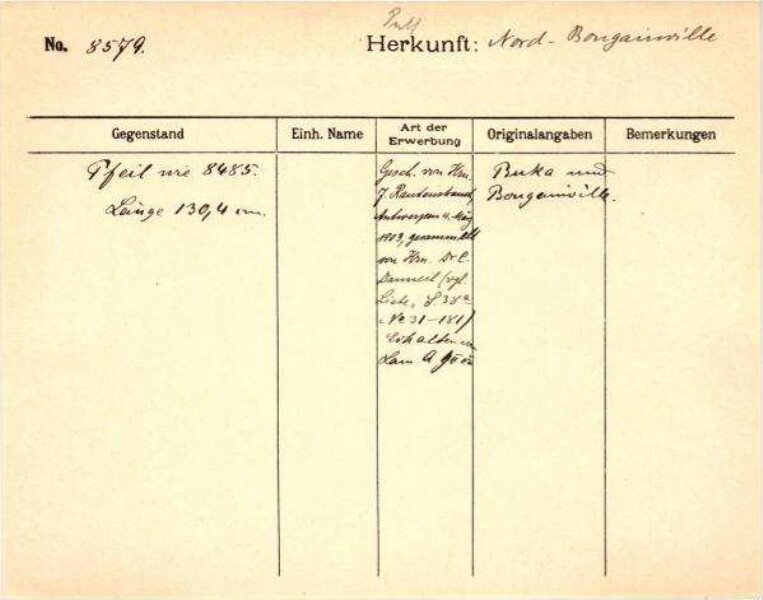 No. 8579.
Herkunft: Nord-Bougainville
Gegenstand
Einh. Name
Art der Erwerbung
Originalangaben
Bemerkungen
Pfeil wie 8485.
Länge 130,4 cm.
Gesch. von Hrn.
J. Rautenstrauch,
Antwerpen 4. März
1903, gesammelt
von Hrn. Dr C.
Danneil (vgl.
Liste, S. 38a
No 31-181)
Erhalten von
Buka und
Bougainville.